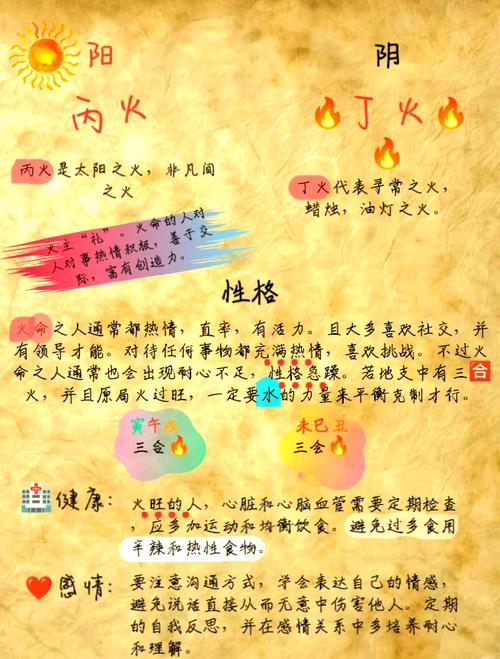 阳
阴
丙火
丁火
丙火是太阳之火，非凡间
之火
丁火代表寻常之火，
蜡烛，油灯之火。
火主“礼”。火命的人对
人对事热情积极，善于交
际，富有创造力。
性格
火命之人通常都热情，直率，有活力。且大多喜欢社交，并
有领导才能。对待任何事物都充满热情，喜欢挑战。不过火
命之人通常也会出现耐心不足，性格急躁。若地支中有三合
火，并且原局火过旺，一定要水的力量来平衡克制才行。
寅午戌
三合
未巳丑
三会
健康：
火旺的人，心脏和心脑血管需要定期检查
，应多加运动和均衡饮食。避免过多食用
辛辣和热性食物。
感情：
要注意沟通方式，学会表达自己的情感，
避免说话直接从而无意中伤害他人。定期
的自我反思，并在感情关系中多培养耐心
和理解。